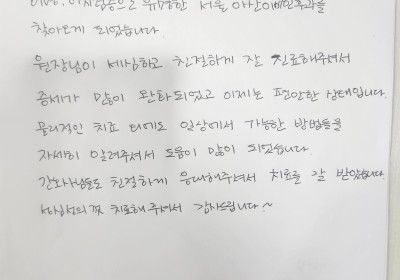 어지럼증으로 유명한 서울 아산이비인후과를
찾아오게 되었습니다
원장님이 세심하고 친절하게 잘 진료해주셔서
증세가 많이 완화되었고 이제는 편안한 상태입니다.
물리적인 치료 외에도 일상에서 가능한 방법들을
자세히 알려주셔서 도움이 많이 되었습니다.
간호사님들도 친절하게 응대해주셔서 치료를 잘 받았습니다.
치료해주셔서 감사드립니다~